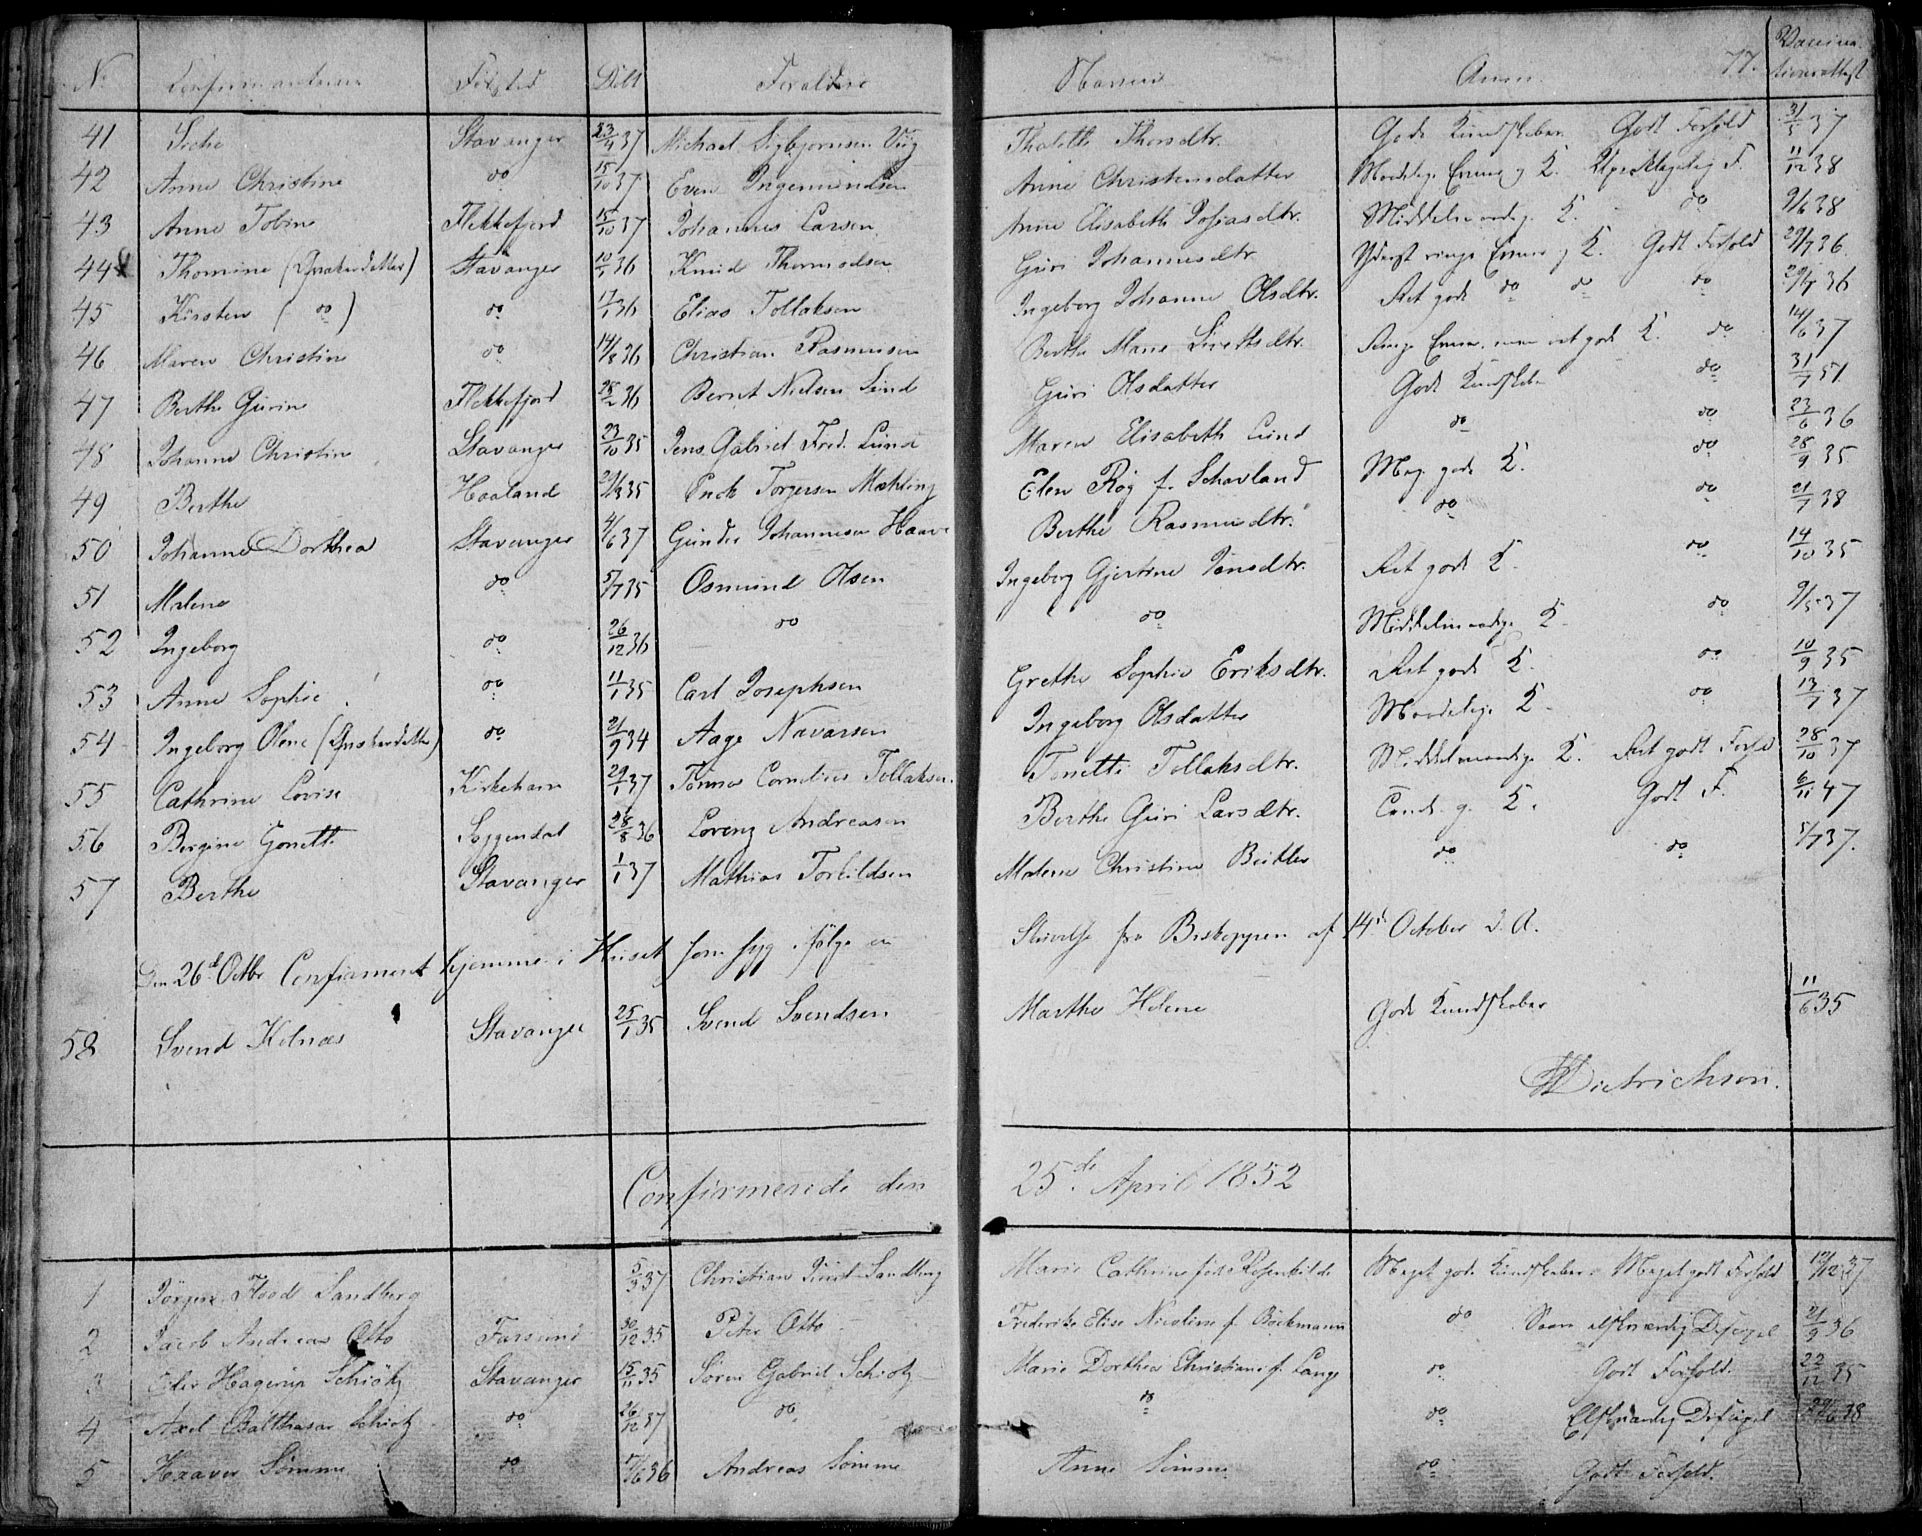 77.
No Confirmanterne Födested Döbt Forældre Navne Anm. Vaccinationsattest
41 Stavanger 23/4 37 Michael Sigbjørnsen Viig Thalette Thorsdtr. Gode Kundskaber Godt Forhold 31/5 37
42 Anne Christine do 15/10 37 Even Ingemundsen Anne Christensdatter Maadelige Evner og K. Upaaklagelig F. 11/12 38
43 Anne Tobine Flekkefjord 15/10 37 Johannes Larsen Anne Elisabeth Josiasdtr. Middelmaadige K. do 9/6 38
44 Thomine (Qvækerdatter) Stavanger 10/7 36 Knud Thormodsen Guri Johannesdtr. Yderst ringe Evner og K. Godt Forhold 29/7 36
45 Kirsten (do) do 17/1 36 Elias Tollaksen Ingeborg Johanne Olsdtr. Ret gode do do do 29/7 36
46 Maren Christine do 14/8 36 Christian Rasmussen Berthe Marie Sivertsdtr. Ringe Evner, men ret gode K. do 14/6 37
47 Berthe Gurine Flekkefjord 28/2 36 Bernt Nielsen Lund Guri Olsdatter Gode Kundskaber do 31/7 51
48 Johanne Christine Stavanger 23/10 35 Jens Gabriel Fred. Lund Maren Elisabeth Lund do do 23/6 36
49 Berthe Haaland 29/3 35 Torgersen Mæhling Elen Røg f. Schavland Meg. gode K. do 28/9 35
50 Johanne Dorthea Stavanger 4/6 37 Gunder Johannesen Haave Berthe Rasmusdtr. do do 21/7 38
51 Malene do 5/7 35 Osmund Olsen Ingeborg Gjertine Jonsdtr. Ret gode K. do 14/10 35
52 Ingeborg do 26/12 36 do do Middelmaadige K. do 9/5 37
53 Anne Sophie do 11/1 35 Carl Josephsen Grethe Sophie Eriksdtr. Ret gode K. do 10/9 35
54 Ingeborg Olene (Qvækerdatter) do 21/9 34 Aage Navarsen Ingeborg Olsdatter Maadelige K. do 13/7 37
55 Cathrine Lovise Kirkehavn 29/1 37 Tönnes Cornelius Tollaksen Tonette Tollaksdtr. Middelmaadige K. Ret godt Forhold 28/10 37
56 Bergine Gonette Soggendal 28/8 36 Lorenz Andreasen Berthe Guri Larsdtr. Temel. g. K. Godt F. 6/11 47
57 Berthe Stavanger 1/1 37 Mathias Torkildsen Malene Christine Beitler do do 5/7 37.
Den 26de Octbr Confirmeret hjemme i Huset som syg ifølge en Skrivelse fra Biskoppen af 14de October d. A.
58 Svend Kelnæs Stavanger 25/1 35 Svend Svendsen Marthe Helene Gode Kundskaber 11/6 35
Dietrichson.
Confirmerede den 25de April 1852
1 Jörgen Flood Sandberg 5/3 37 Christian Sandberg Marie Cathrine född Rosenkilde Meget gode Kundskaber Meget godt Forhold 12/12 37
2 Jacob Andreas Otto Farsund 30/12 35 Peter Otto Frederike Elise Nicoline f. Böckmann do elskværdig 21/9 36
3 Hagerup Schiötz Stavanger 15/11 35 Sören Gabriel Schiötz Marie Dorthea Christiane f. Lange do Godt Forhold. 22/12 35
4 Axel Balthasar Schiötz do 26/12 37 do do do Elskværdig 29/6 38
5 Haaver Sömme do 17/6 36 Andreas Sömme Anne Sömme do Godt Forhold.